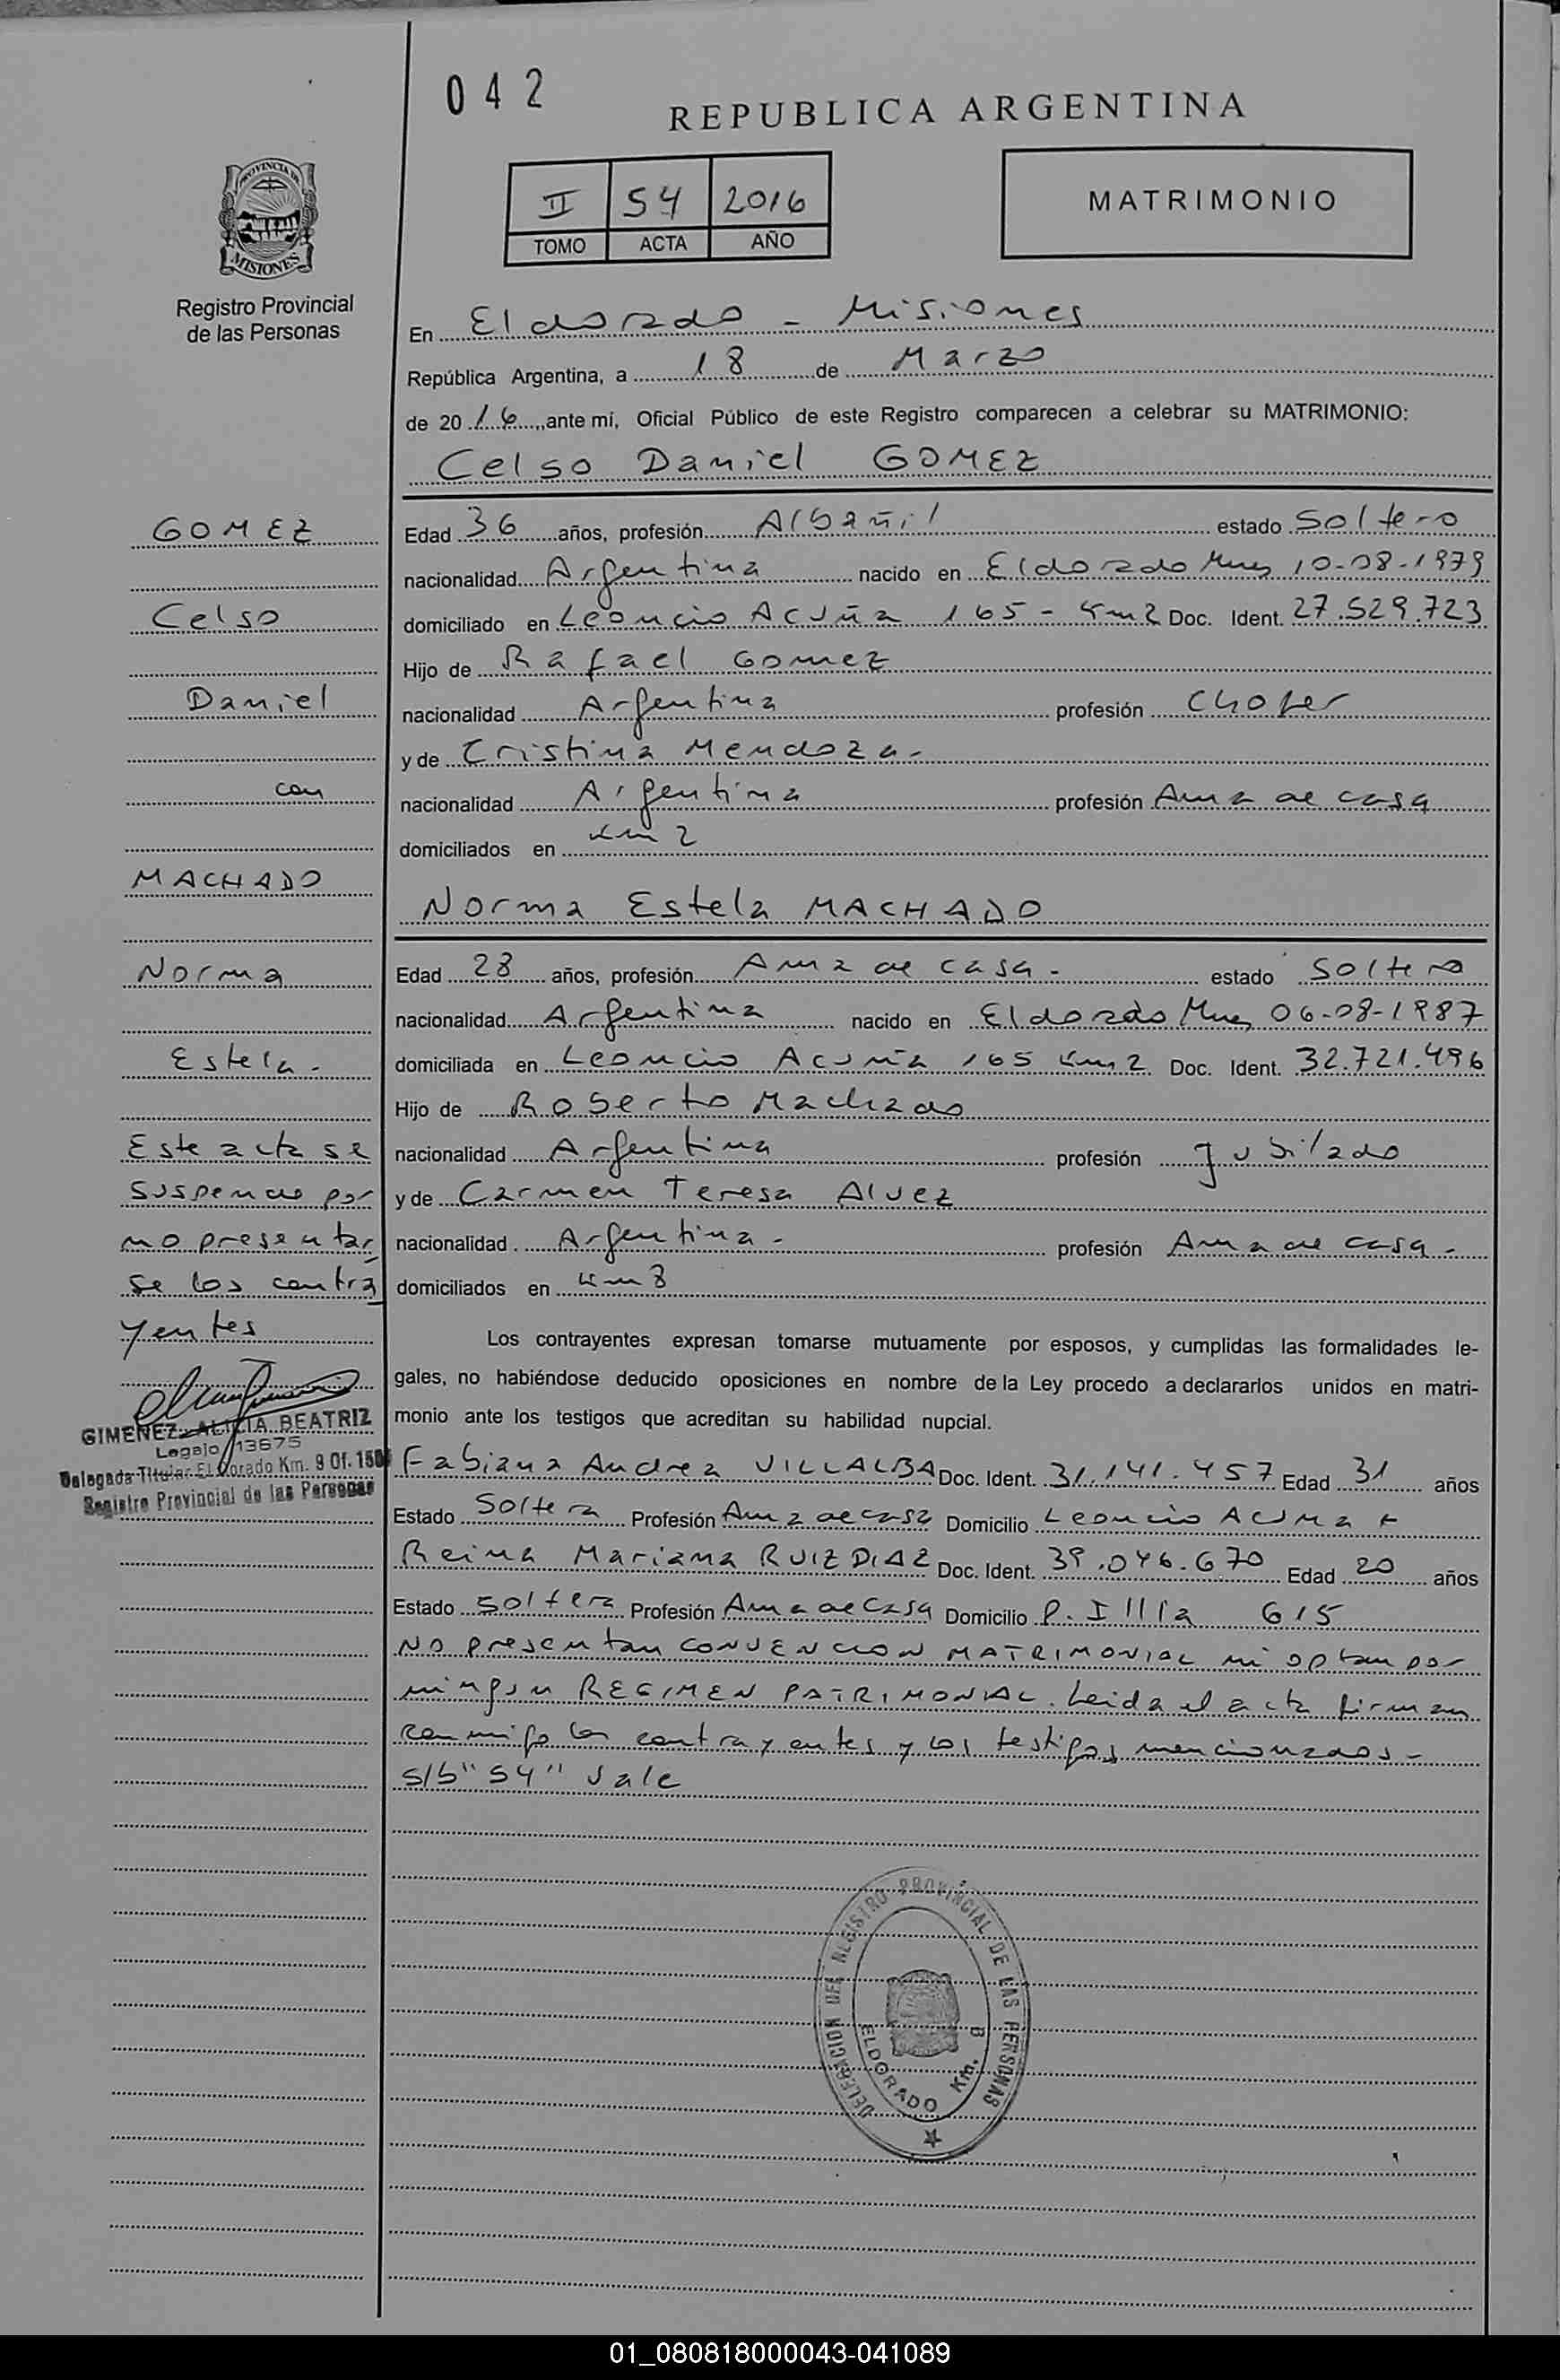 042
REPUBLICA ARGENTINA
II 54 2016
TOMO ACTA AÑO
MATRIMONIO
PROVINCIA DE
MISIONES
Registro Provincial
de las Personas
En Eldorado - Misiones
República Argentina, a 18 de Marzo
de 2016 ante mí, Oficial Público de este Registro comparecen a celebrar su MATRIMONIO:
Celso Daniel GOMEZ
Edad 36 años, profesión Albañil estado Soltero
nacionalidad Argentina nacido en Eldorado Mnes 10-08-1979
domiciliado en Leoncio Acuña 165 - Km 2 Doc. Ident. 27.529.723
Hijo de Rafael Gomez
nacionalidad Argentina profesión Chofer
y de Cristina Mendoza -
nacionalidad Argentina profesión Ama de casa
domiciliados en Km 2
Norma Estela MACHADO
Edad 28 años, profesión Ama de casa - estado Soltero
nacionalidad Argentina nacido en Eldorado Mnes 06-08-1987
domiciliada en Leoncio Acuña 165 Km 2 Doc. Ident. 32.721.496
Hijo de Roberto Machado
nacionalidad Argentina profesión Jubilado
y de Carmen Teresa Alvez
nacionalidad Argentina - profesión Ama de casa -
domiciliados en Km 8
Los contrayentes expresan tomarse mutuamente por esposos, y cumplidas las formalidades le-
gales, no habiéndose deducido oposiciones en nombre de la Ley procedo a declararlos unidos en matri-
monio ante los testigos que acreditan su habilidad nupcial.
Fabiana Andrea VILLALBA Doc. Ident. 31.141.457 Edad 31 años
Estado Soltera Profesión Ama de casa Domicilio Leoncio Acuña
Reina Mariana RUIZ DIAZ Doc. Ident. 39.046.670 Edad 20 años
Estado soltera Profesión Ama de casa Domicilio P. Illia 615
No presentan CONVENCION MATRIMONIAL ni optan por
ningun REGIMEN PATRIMONIAL. Leida el acta firman
conmigo los contrayentes y los testigos mencionados -
S/b "54" Vale
GOMEZ
Celso
Daniel
con
MACHADO
Norma
Estela -
Este acta se
suspende por
no presentar
se los contra
yentes
GIMENEZ ALICIA BEATRIZ
Legajo 13675
Delegada Titular Eldorado Km. 9 Of. 150
Registro Provincial de las Personas
DELEGACION DEL REGISTRO PROVINCIAL DE LAS PERSONAS
ELDORADO Km.
01_080818000043-041089